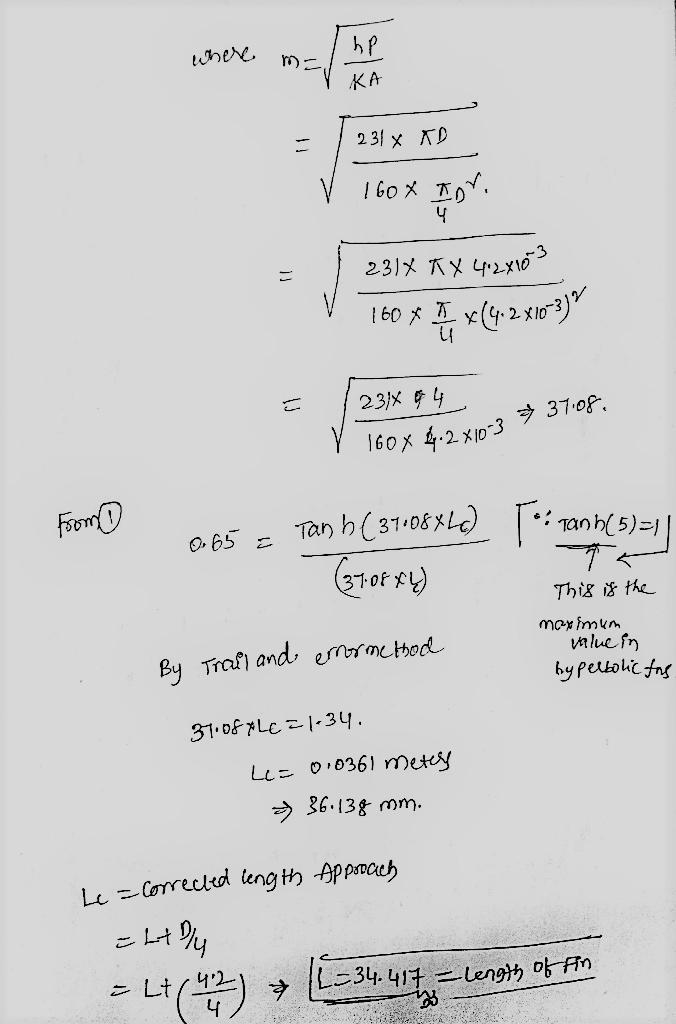 where m = √(hP / KA)
= √(231 × πD / 160 × π/4 D²)
= √(231 × π × 4.2×10⁻³ / 160 × π/4 × (4.2×10⁻³)²)
= √(231 × 4 / 160 × 4.2×10⁻³) ⇒ 37.08.
From ①
0.65 = Tanh(37.08×Lc) / (37.08×Lc) [∵ Tanh(5)=1]
This is the
maximum
value in
hyperbolic fns
By Trail and error method
37.08×Lc = 1.34.
Lc = 0.0361 meters
⇒ 36.138 mm.
Lc = Corrected length Approach
= L+D/4
= L+(4.2/4) ⇒ L=34.417 = length of Fin